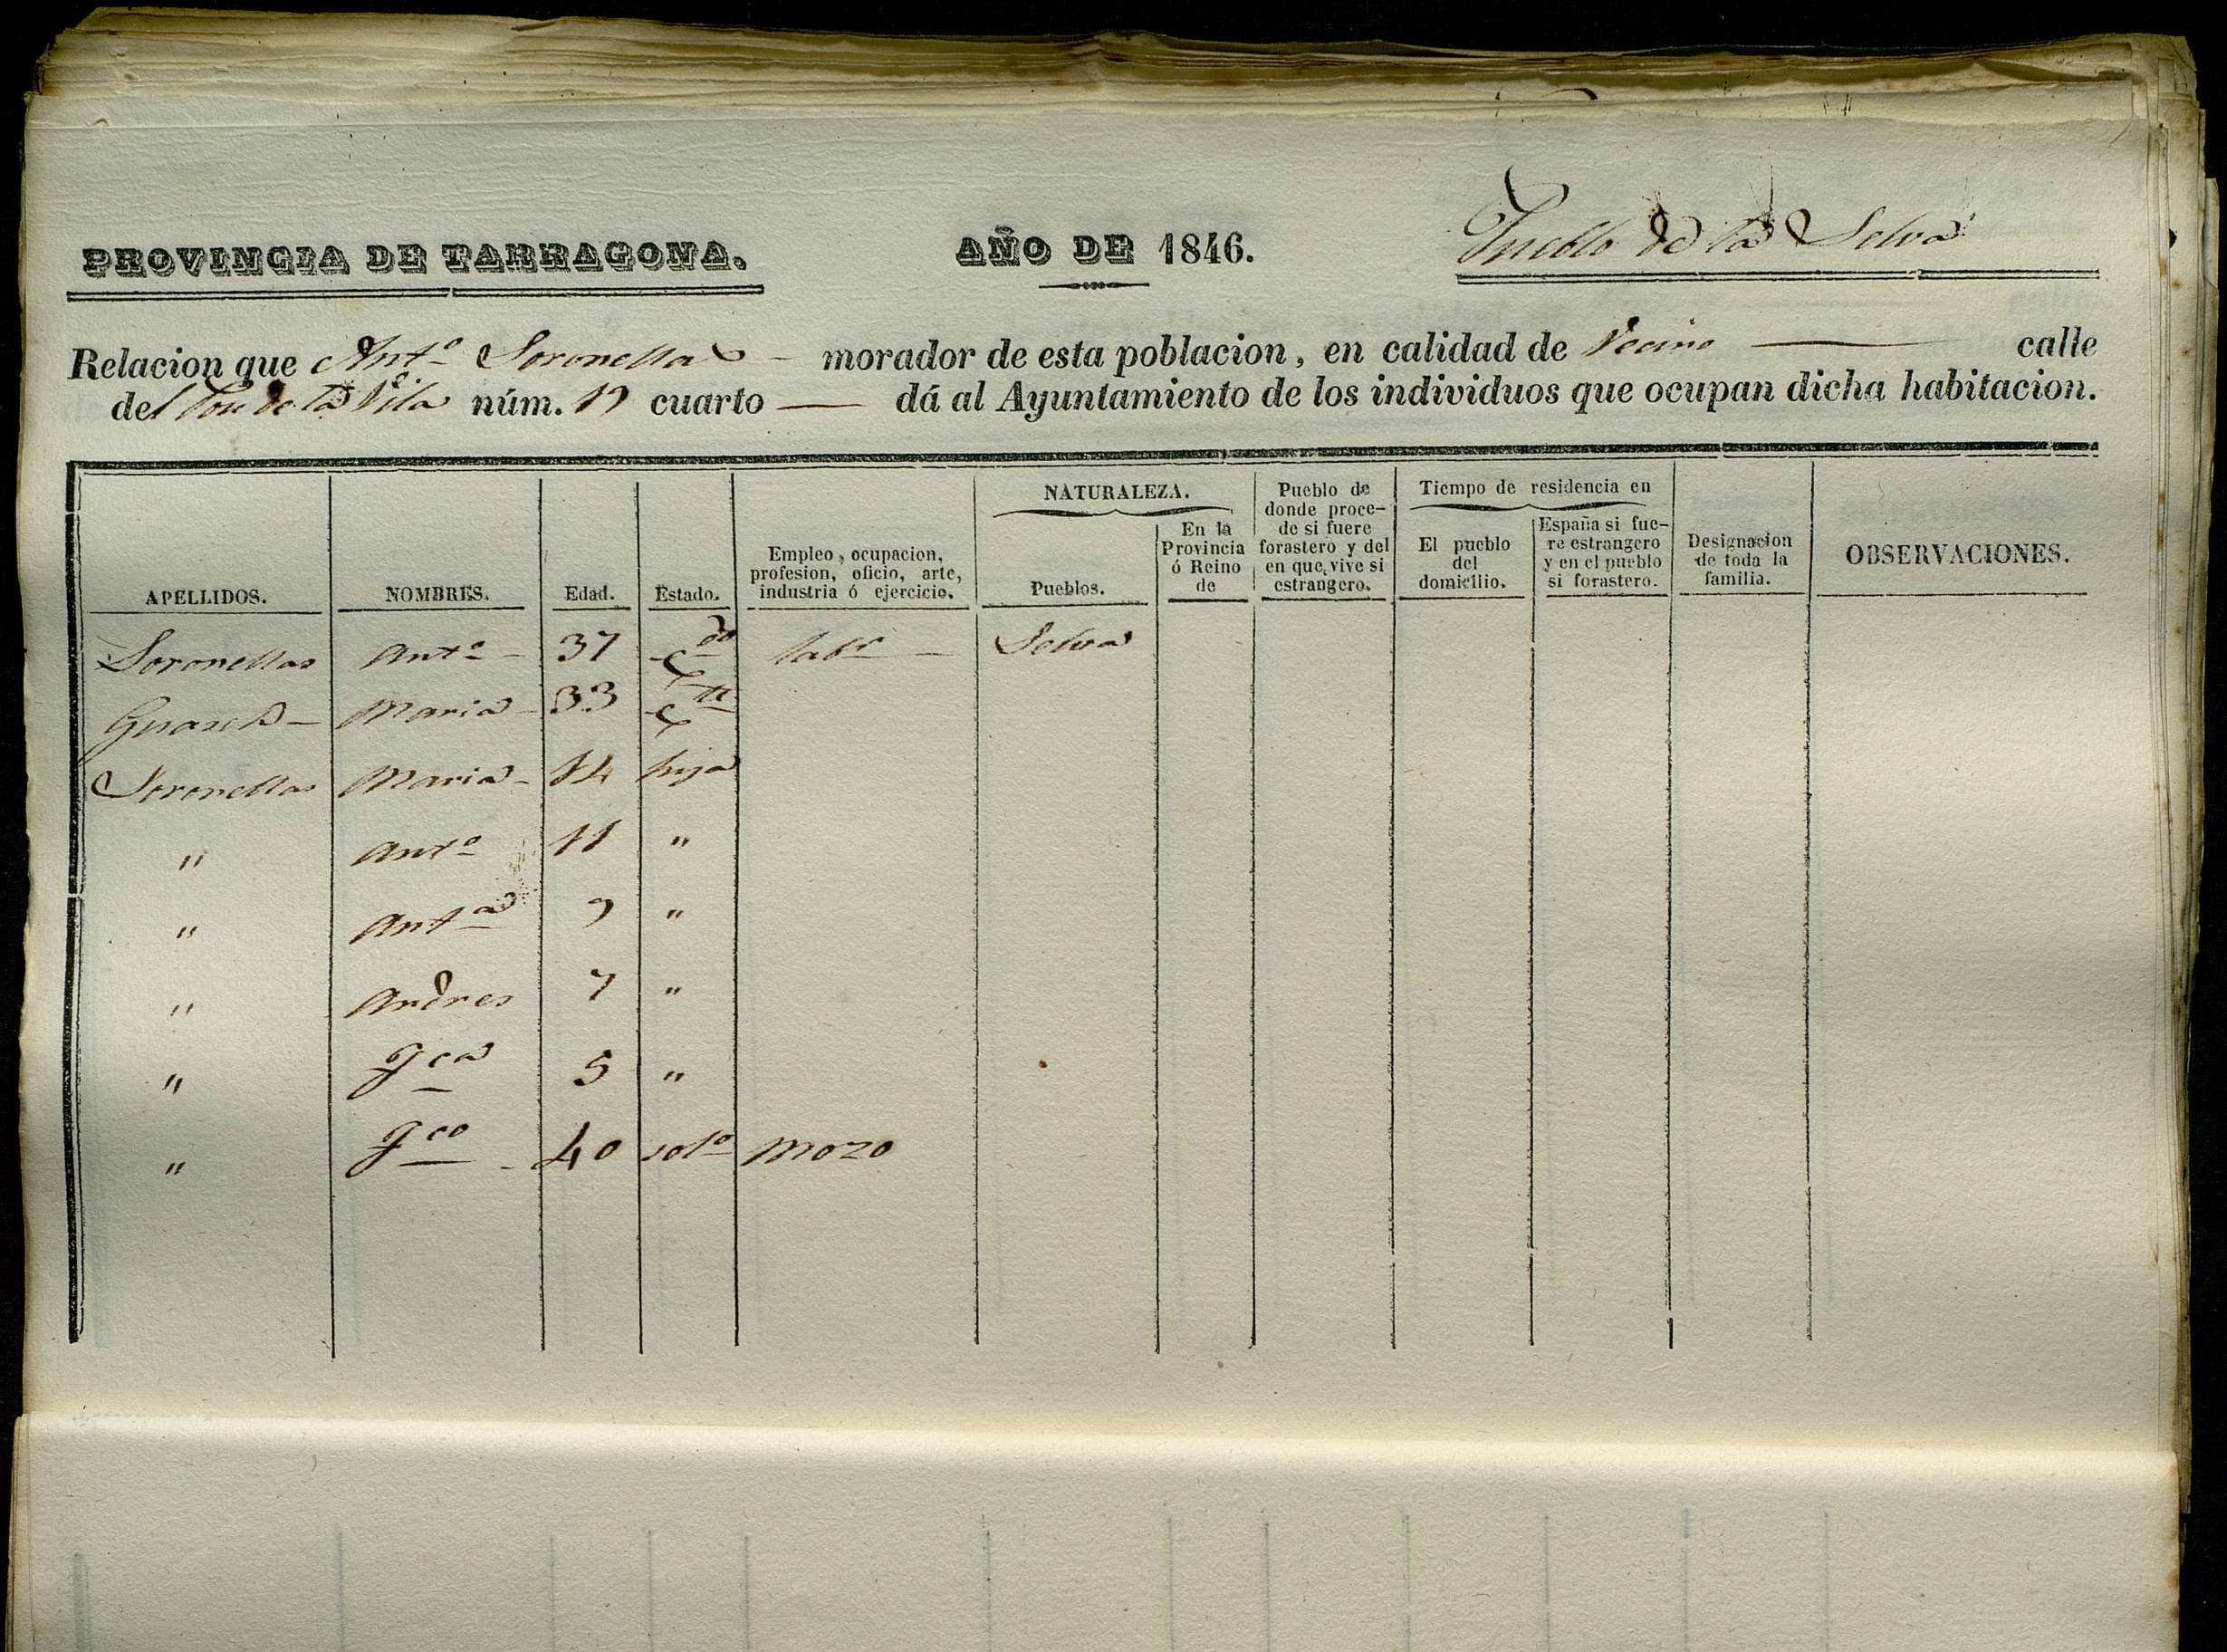 PROVINCIA DE TARRAGONA.
AÑO DE 1846.
Pueblo de la Selva
Relacion que Antº Soronellas morador de esta poblacion, en calidad de Vecino calle
del de la Vila núm. cuarto — dá al Ayuntamiento de los individuos que ocupan dicha habitacion.
APELLIDOS. NOMBRES. Edad. Estado. Empleo, ocupacion, profesion, oficio, arte, industria ó ejercicio. NATURALEZA. Pueblos. En la Provincia ó Reino de Pueblo de donde procede si fuere forastero y del en que vive si estrangero. Tiempo de residencia en El pueblo del domicilio. España si fuere estrangero y en el pueblo si forastero. Designacion de toda la familia. OBSERVACIONES.
Soronellas Antº 37 Cdo labr Selva
Guasch Maria 33 Cda
Soronellas Maria 14 hija
" Antº 11 "
" Antª 9 "
" Andres 7 "
" Fca 5 "
" Fco 40 solº mozo